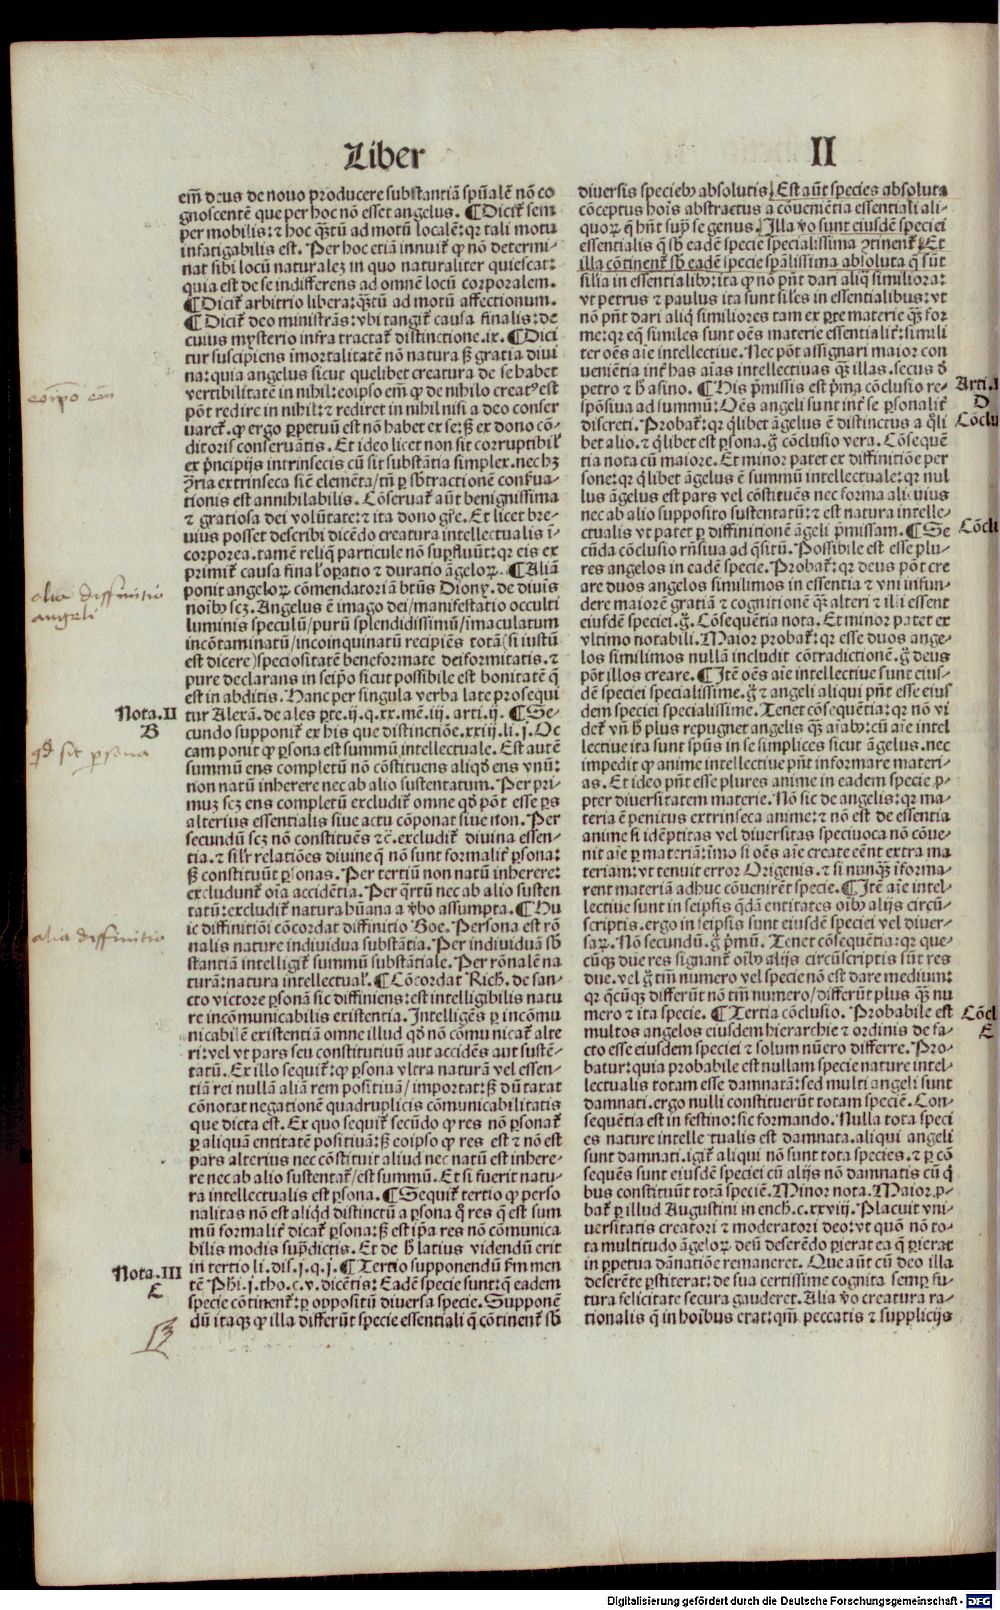 Liber II
em̄ deus de nouo producere substantiā spūalē nō co
gnoscentē que per hoc nō esset angelus. ¶ Dicit̄ sem
per mobilis: ⁊ hoc q̄ꝫtū ad motū localē: qꝛ tali motu
infatigabilis est. Per hoc etiā innuit̄ ꝙ nō determi-
nat sibi locū naturaleꝫ in quo naturaliter quiescat:
quia est de se indifferens ad omnē locū corporalem.
¶ Dicit̄ arbitrio libera: q̄ꝫtū ad motum affectionum.
¶ Dicit̄ deo ministrās: vbi tangit̄ causa finalis: de
cuius mysterio infra tractat̄ distinctione .ix. ¶ Dici
tur suscipiens īmortalitatē nō natura sꝫ gratia diui
na: quia angelus sicut quelibet creatura de se habet
vertibilitatē in nihil: eoipso em̄ ꝙ de nihilo creatꝰ est
pōt redire in nihil: ⁊ rediret in nihil nisi a deo conser
uaret̄. ꝙ ergo ꝑpetuū est nō habet ex se: sꝫ ex dono cō-
ditoris conseruātis. Et ideo licet non sit corruptibil̄
ex p̄ncipijs intrinsecis cū sit substātia simplex. nec hꝫ
ꝯ̄ria extrinseca sicut elemēta/ tn̄ ꝑ sb̄tractionē conserua-
tionis est annihilabilis. Cōseruat̄ aūt benignissima
⁊ gratiosa dei volūtate: ⁊ ita dono gr̄e. Et licet bre-
uius posset describi dicēdo creatura intellectualis ī-
corporea. tamē reliq̄ particule nō suꝑfluūt: qꝛ eis ex
primit̄ causa final̄ oꝑatio ⁊ duratio āgeloꝝ. ¶ Aliā
ponit angeloꝝ cōmendatoriā btūs Diony. de diuis
noībꝰ scꝫ. Angelus ē imago dei/ manifestatio occulti
luminis speculū/ purū splendidissimū/ īmaculatum
incōtaminatū/ incoinquinatū recipiēs totā (si iustū
est dicere) speciositatē beneformate deiformitatis. ⁊
pure declarans in seipō sicut possibile est bonitatē q̄
est in abditis. Hanc per singula verba late prosequi
tur Alexā. de ales ꝑte .ij. q. xx. mē. iij. arti. ij. ¶ Se-
cundo supponit̄ ex his que distinctiōe .xxiij. li. j. Oc
cam ponit ꝙ ꝑsona est summū intellectuale. Est autē
summū ens completū nō cōstituens aliqd̄ ens vnū:
non natū inherere nec ab alio sustentatum. Per pri-
muꝫ scꝫ ens completū excludit̄ omne qd̄ pōt esse ꝑs
alterius essentialis siue actu cōponat siue non. Per
secundū scꝫ nō constituēs ⁊c̄. excludit̄ diuina essen-
tia. ⁊ silr̄ relatiōes diuine q̄ nō sunt formalit̄ ꝑsona:
sꝫ constituūt ꝑsonas. Per tertiū non natū inherere:
excludunt̄ oīa accidētia. Per q̄rtū nec ab alio susten
tatū: excludit̄ natura hūana a ꝟbo assumpta. ¶ Hu
ic diffinitiōi cōcordat diffinitio Boe. Persona est rō
nalis nature indiuidua substātia. Per indiuiduā sb̄
stantiā intelligit̄ summū substātiale. Per rōnalē na
turā: natura intellectual̄. ¶ Cōcordat Rich. de san-
cto victore ꝑsonā sic diffiniens: est intelligibilis natu
re incōmunicabilis existentia. Intelligēs ꝑ incōmu
nicabilē existentiā omne illud qd̄ nō cōmunicat̄ alte
ri: vel vt pars seu constitutiuū aut accidēs aut sustē-
tatū. Ex illo sequit̄: ꝙ ꝑsona vltra naturā vel essen-
tiā rei nullā aliā rem positiuā/ importat: sꝫ dūtaxat
cōnotat negationē quadruplicis cōmunicabilitatis
que dicta est. Ex quo sequit̄ secūdo ꝙ res nō ꝑsonat̄
ꝑ aliquā entitatē positiuā: sꝫ eoipso ꝙ res est ⁊ nō est
pars alterius nec cōstituit aliud nec natū est inhere-
re nec ab alio sustentat̄/ est summū. Et si fuerit natu-
ra intellectualis est ꝑsona. ¶ Sequit̄ tertio ꝙ perso
nalitas nō est aliqd̄ distinctū a ꝑsona q̄ res q̄ est sum
mū formalit̄ dicat̄ ꝑsona: sꝫ est ip̄a res nō cōmunica
bilis modis sup̄dictis. Et de h̄ latius videndū erit
in tertio li. dis. j. q. j. ¶ Tertio supponendū ẜm men
tē Ph̄i. j. tho. c. v. dicētis: Eadē specie sunt: q̄ eadem
specie cōtinent̄: ꝑ oppositū diuersa specie. Supponē
dū itaqꝫ ꝙ illa differūt specie essentiali q̄ cōtinent̄ sb̄
diuersis speciebꝰ absolutis. Est aūt species absoluta
cōceptus hoīs abstractus a cōueniētia essentiali ali-
quoꝝ q̄ hn̄t sup̄ se genus. Illa ꝟo sunt eiusdē speciei
essentialis q̄ sb̄ eadē specie specialissima ꝯtinent̄. Et
illa cōtinent̄ sb̄ eadē specie sp̄alissima absoluta q̄ sūt
silīa in essentialibꝰ: ita ꝙ nō pn̄t dari aliq̄ similiora:
vt petrus ⁊ paulus ita sunt siles in essentialibus: vt
nō pn̄t dari aliq̄ similiores tam ex ꝑte materie q̄ꝫ for
me: qꝛ eq̄ similes sunt oēs materie essentialit̄: simili
ter oēs aīe intellectiue. Nec pōt assignari maior con
ueniētia int̄ has aīas intellectiuas q̄ꝫ illas. secus d̄
petro ⁊ h̄ asino. ¶ His p̄missis est p̄ma cōclusio re-
spōsiua ad summū: Oēs angeli sunt int̄ se ꝑsonalit̄
discreti. Probat̄: qꝛ q̄libet āgelus ē distinctus a q̄li
bet alio. ⁊ q̄libet est ꝑsona. g̊ cōclusio vera. Cōsequē
tia nota cū maiore. Et minor patet ex diffinitiōe per
sone: qꝛ q̄libet āgelus ē summū intellectuale: qꝛ nul
lus āgelus est pars vel cōstituēs nec forma alicuius
nec ab alio supposito sustentatū: ⁊ est natura intelle-
ctualis vt patet ꝑ diffinitionē āgeli p̄missam. ¶ Se
cūda cōclusio rn̄siua ad q̄sitū. Possibile est esse plu-
res angelos in eadē specie. Probat̄: qꝛ deus pōt cre
are duos angelos similimos in essentia ⁊ vni infun-
dere maiorē gratiā ⁊ cognitionē q̄ꝫ alteri ⁊ illi essent
eiusdē speciei. g̊. Cōsequētia nota. Et minor patet ex
vltimo notabili. Maior probat̄: qꝛ esse duos ange-
los similimos nullā includit cōtradictionē. g̊ deus
pōt illos creare. ¶ Itē oēs aīe intellectiue sunt eius-
dē speciei specialissime. g̊ ⁊ angeli aliqui pn̄t esse eius
dem speciei specialissime. Tenet cōsequētia: qꝛ nō vi
det̄ vn̄ h̄ plus repugnet angelis q̄ꝫ aīabꝰ: cū aīe intel
lectiue ita sunt spūs in se simplices sicut āgelus. nec
impedit ꝙ anime intellectiue pn̄t informare materi-
as. Et ideo pn̄t esse plures anime in eadem specie ꝓ-
pter diuersitatem materie. Nō sic de angelis: qꝛ ma-
teria ē penitus extrinseca anime: ⁊ nō est de essentia
anime si idēptitas vel diuersitas speciuoca nō cōue-
nit aīe ꝑ materiā: īmo si oēs aīe create eēnt extra ma
teriam: vt tenuit error Origenis. ⁊ si nunq̄ꝫ īforma-
rent materiā adhuc cōuenirēt specie. ¶ Itē aīe intel-
lectiue sunt in seipsis q̄dā entitates oībꝰ alijs circū-
scriptis. ergo in seipsis sunt eiusdē speciei vel diuer-
saꝝ. Nō secundū. g̊ p̄mū. Tenet cōsequētia: qꝛ que-
cūqꝫ due res signant̄ oībꝰ alijs circūscriptis sūt res
due. vel g̊ tm̄ numero vel specie nō est dare medium:
qꝛ q̄cūqꝫ differūt nō tm̄ numero/ differūt plus q̄ꝫ nu
mero ⁊ ita specie. ¶ Tertia cōclusio. Probabile est
multos angelos eiusdem hierarchie ⁊ ordinis de fa-
cto esse eiusdem speciei ⁊ solum nūero differre. Pro-
batur: quia probabile est nullam specie nature intel-
lectualis totam esse damnatā: sed multi angeli sunt
damnati. ergo nulli constituerūt totam speciē. Con-
sequētia est in festino: sic formando. Nulla tota speci
es nature intellectualis est damnata. aliqui angeli
sunt damnati. igit̄ aliqui nō sunt tota species. ⁊ ꝑ cō
sequēs sunt eiusdē speciei cū alijs nō damnatis cū q̄
bus constituūt totā speciē. Minor nota. Maior ꝓ-
bat̄ ꝑ illud Augustini in ench. c. xxviij. Placuit vni-
uersitatis creatori ⁊ moderatori deo: vt quō nō to-
ta multitudo āgeloꝝ deū deserēdo ꝑierat ea q̄ ꝑierat
in ꝑpetua dānatiōe remaneret. Que aūt cū deo illa
deserēte ꝑstiterat: de sua certissime cognita semꝑ fu-
tura felicitate secura gauderet. Alia ꝟo creatura ra-
tionalis q̄ in hoībus erat: qm̄ peccatis ⁊ supplicijs
eoipso em̄
alia diffinitio
angeli
Nota. II
B
qd̄ sit ꝑsona
alia diffinitio
Nota. III
C
Arti. I
D
Cōclu
Cōclu
Cōcl
E
Digitalisierung gefördert durch die Deutsche Forschungsgemeinschaft - DFG